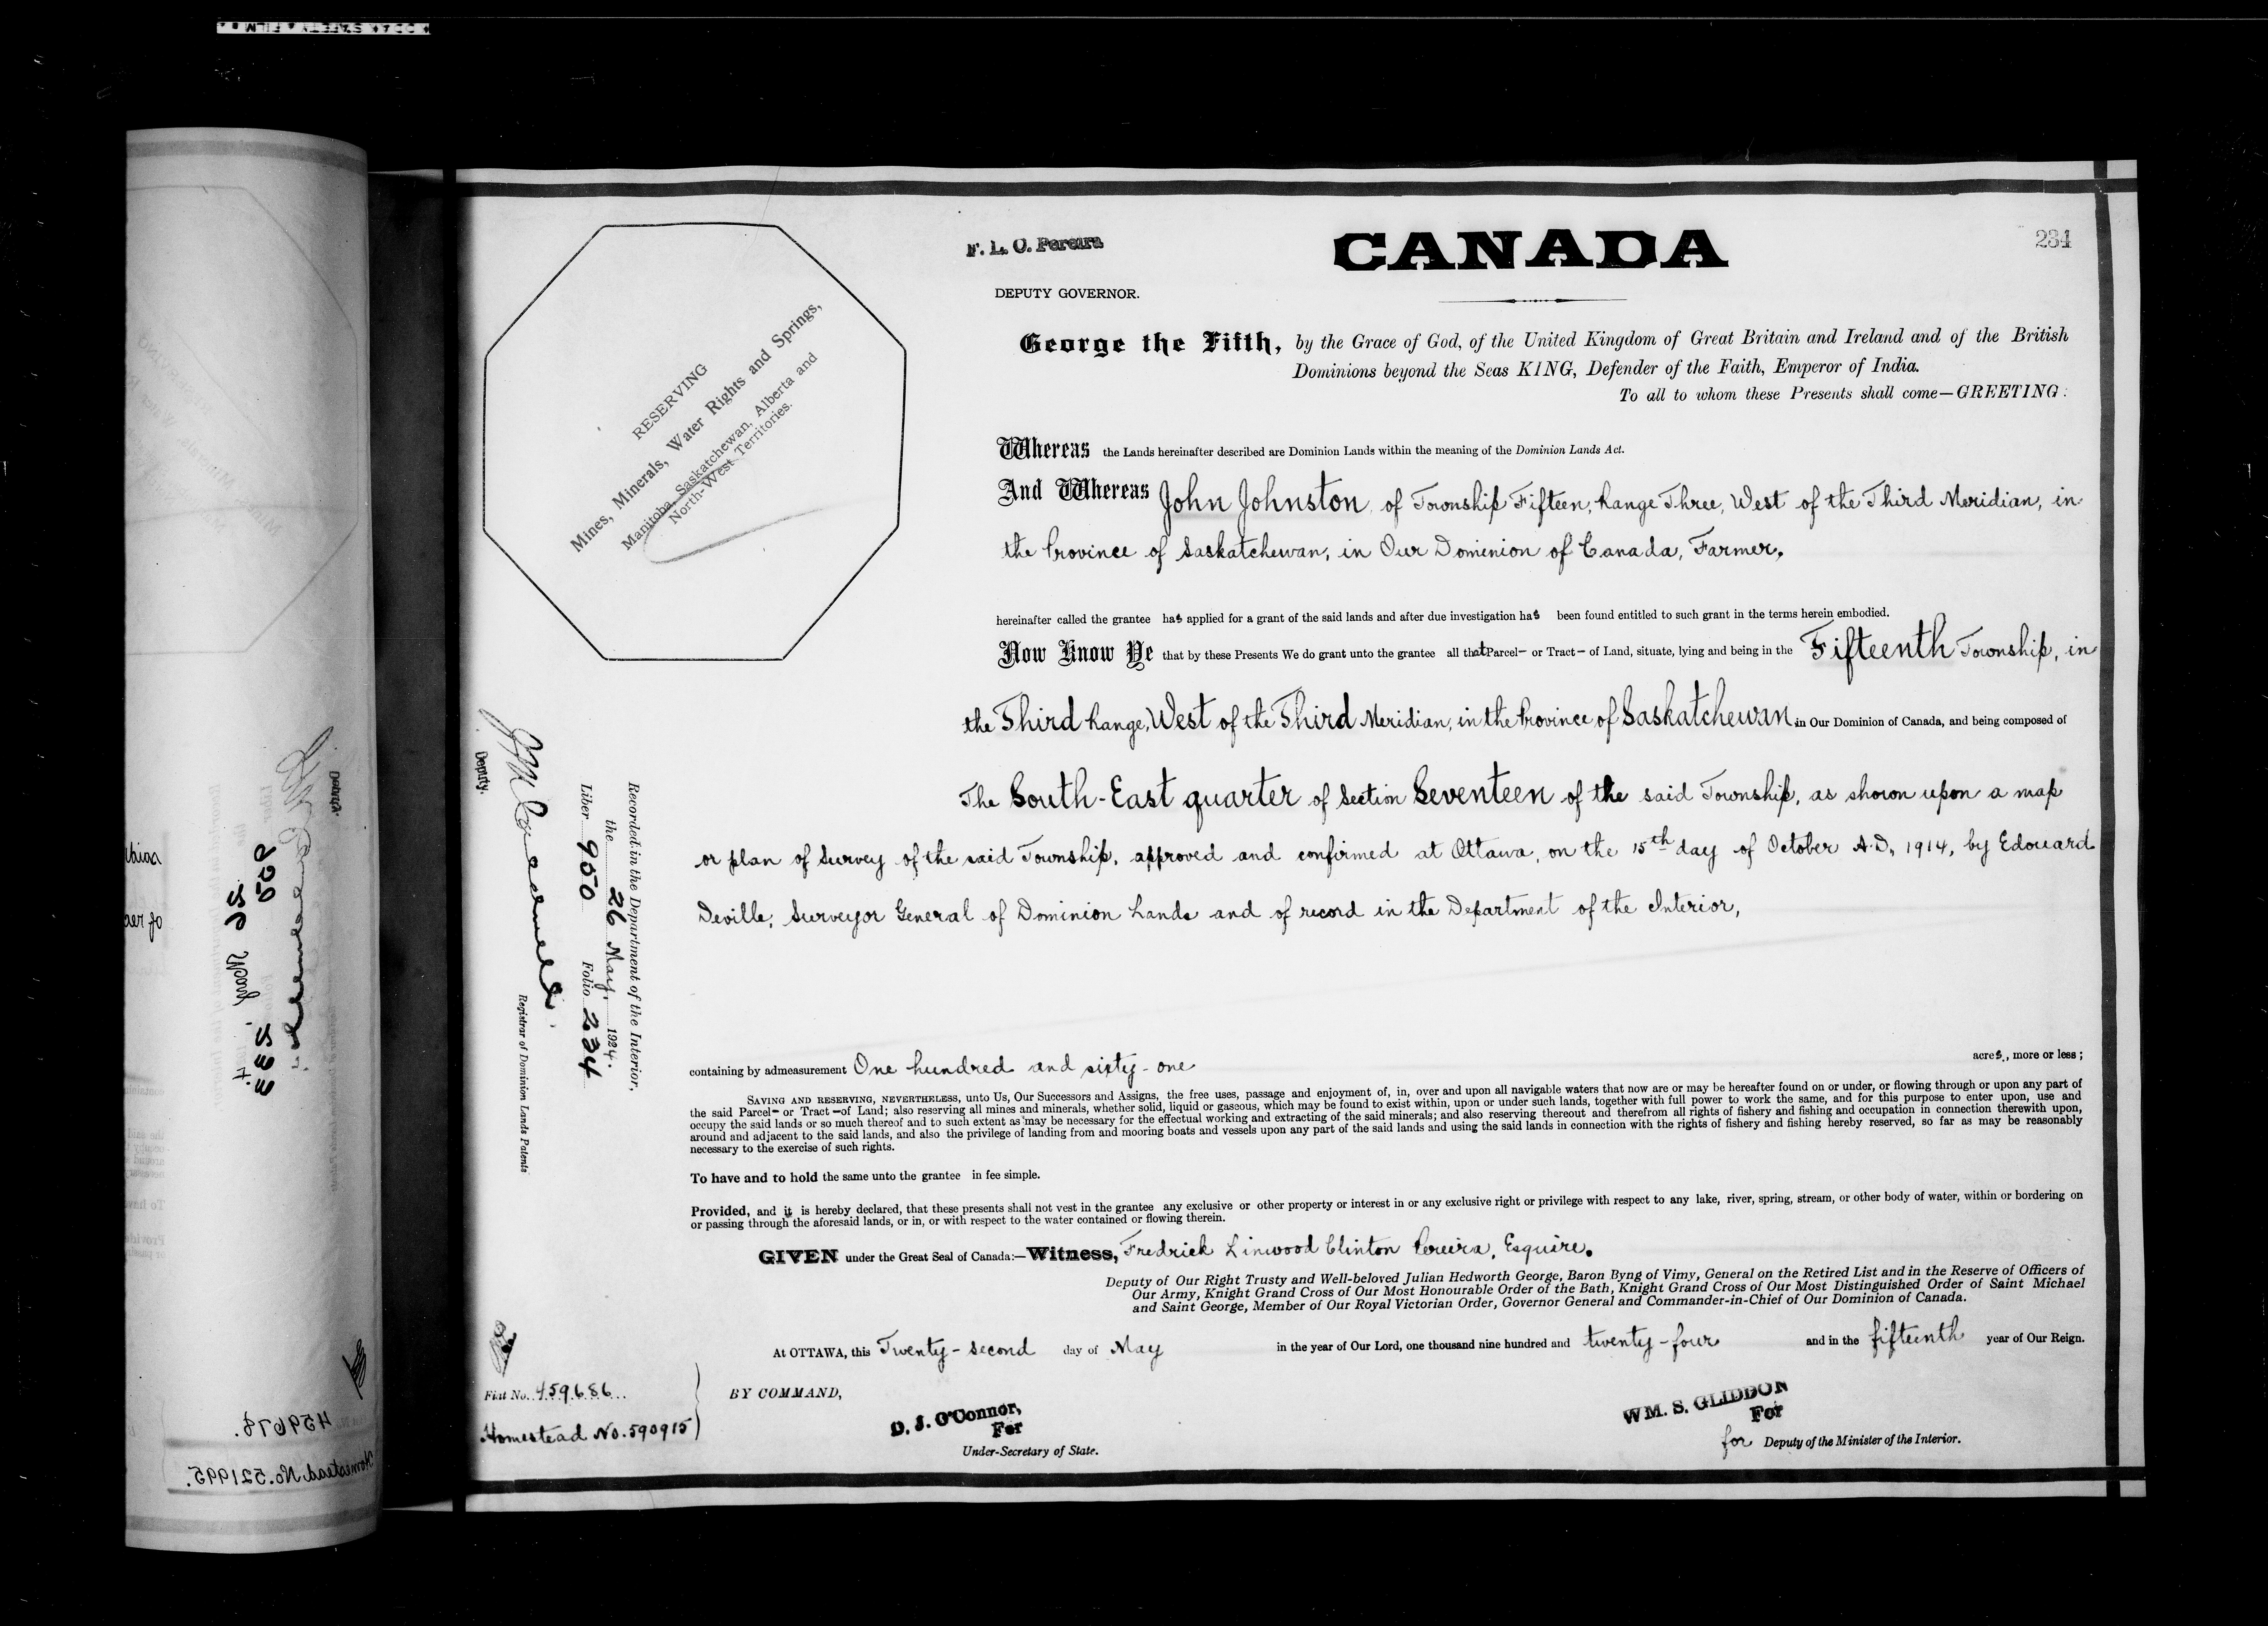 F. L. C. Pereira
CANADA
234
DEPUTY GOVERNOR.
George the Fifth, by the Grace of God, of the United Kingdom of Great Britain and Ireland and of the British
Dominions beyond the Seas KING, Defender of the Faith, Emperor of India.
To all to whom these Presents shall come—GREETING:
RESERVING
Mines, Minerals, Water Rights and Springs,
Manitoba, Saskatchewan, Alberta and
North-West Territories.
Whereas the Lands hereinafter described are Dominion Lands within the meaning of the Dominion Lands Act.
And Whereas John Johnston of Township Fifteen, Range Three, West of the Third Meridian, in
the Province of Saskatchewan, in Our Dominion of Canada, Farmer,
hereinafter called the grantee has applied for a grant of the said lands and after due investigation has been found entitled to such grant in the terms herein embodied.
Now Know Ye that by these Presents We do grant unto the grantee all that Parcel— or Tract— of Land, situate, lying and being in the Fifteenth Township, in
the Third Range, West of the Third Meridian, in the Province of Saskatchewan in Our Dominion of Canada, and being composed of
The South-East quarter of Section Seventeen of the said Township, as shown upon a map
or plan of Survey of the said Township, approved and confirmed at Ottawa, on the 15th day of October A.D. 1914, by Edouard
Deville, Surveyor General of Dominion Lands and of record in the Department of the Interior,
containing by admeasurement One hundred and sixty-one acres, more or less;
SAVING AND RESERVING, NEVERTHELESS, unto Us, Our Successors and Assigns, the free uses, passage and enjoyment of, in, over and upon all navigable waters that now are or may be hereafter found on or under, or flowing through or upon any part of
the said Parcel— or Tract —of Land; also reserving all mines and minerals, whether solid, liquid or gaseous, which may be found to exist within, upon or under such lands, together with full power to work the same, and for this purpose to enter upon, use and
occupy the said lands or so much thereof and to such extent as may be necessary for the effectual working and extracting of the said minerals; and also reserving thereout and therefrom all rights of fishery and fishing and occupation in connection therewith upon,
around and adjacent to the said lands, and also the privilege of landing from and mooring boats and vessels upon any part of the said lands and using the said lands in connection with the rights of fishery and fishing hereby reserved, so far as may be reasonably
necessary to the exercise of such rights.
To have and to hold the same unto the grantee in fee simple.
Provided, and it is hereby declared, that these presents shall not vest in the grantee any exclusive or other property or interest in or any exclusive right or privilege with respect to any lake, river, spring, stream, or other body of water, within or bordering on
or passing through the aforesaid lands, or in, or with respect to the water contained or flowing therein.
GIVEN under the Great Seal of Canada:—Witness, Fredrick Linwood Clinton Pereira, Esquire.
Deputy of Our Right Trusty and Well-beloved Julian Hedworth George, Baron Byng of Vimy, General on the Retired List and in the Reserve of Officers of
Our Army, Knight Grand Cross of Our Most Honourable Order of the Bath, Knight Grand Cross of Our Most Distinguished Order of Saint Michael
and Saint George, Member of Our Royal Victorian Order, Governor General and Commander-in-Chief of Our Dominion of Canada.
At OTTAWA, this Twenty-second day of May in the year of Our Lord, one thousand nine hundred and twenty-four and in the fifteenth year of Our Reign.
BY COMMAND,
D. J. O'Connor,
For
Under-Secretary of State.
WM. S. GLIDDON
For
for Deputy of the Minister of the Interior.
Recorded in the Department of the Interior,
the 26 May, 1924.
Liber 950 Folio 234
Deputy.
Registrar of Dominion Lands Patents
Fiat No. 459686
Homestead No. 590915
459678.
Homestead No. 521995.